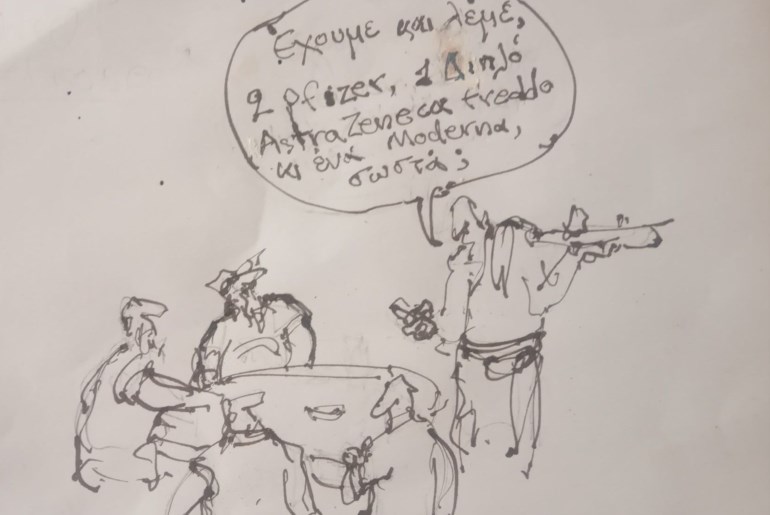 Έχουμε και λέμε,
2 pfizer, 1 Διπλό
AstraZeneca freddo
κι ένα Moderna,
σωστά;